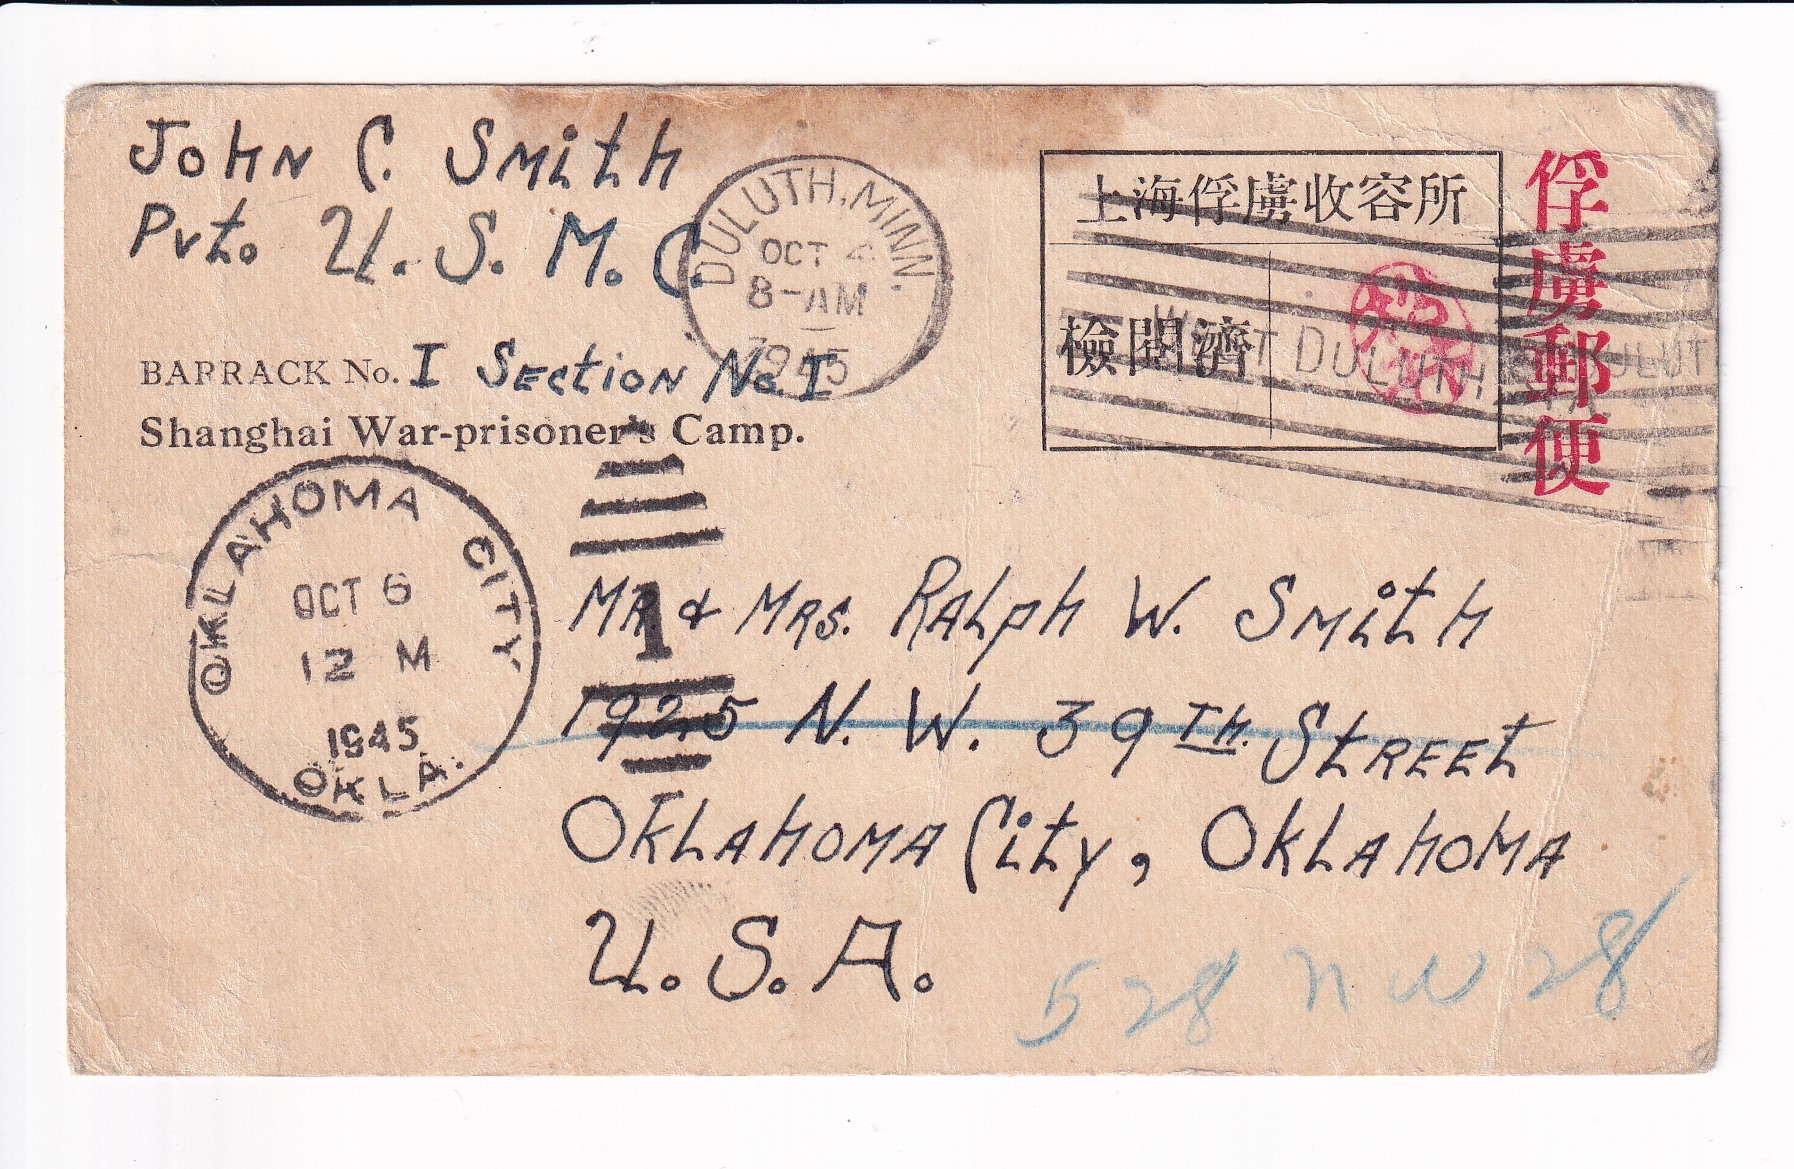 John C. Smith
Pvt. U. S. M. C.
BARRACK No. I Section No I
Shanghai War-prisoner's Camp.
DULUTH, MINN.
OCT 4
8-AM
1945
上海俘虜收容所
檢閲濟
俘虜郵便
DULUTH
OKLAHOMA CITY
OCT 6
12 M
1945
OKLA.
1
MR & MRS. RALPH W. Smith
1925 N. W. 39TH. STREET
OKLAHOMA City, OKLAHOMA
U. S. A.
528 NW 28